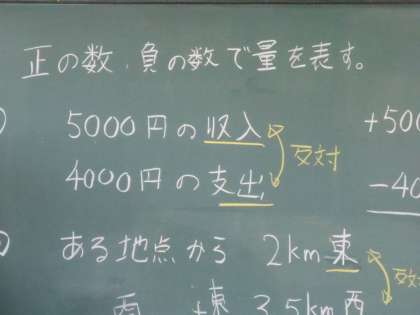 正の数、負の数で量を表す。
5000円の収入 反対 +500
4000円の支出 -40
ある地点から 2km東
3.5km西